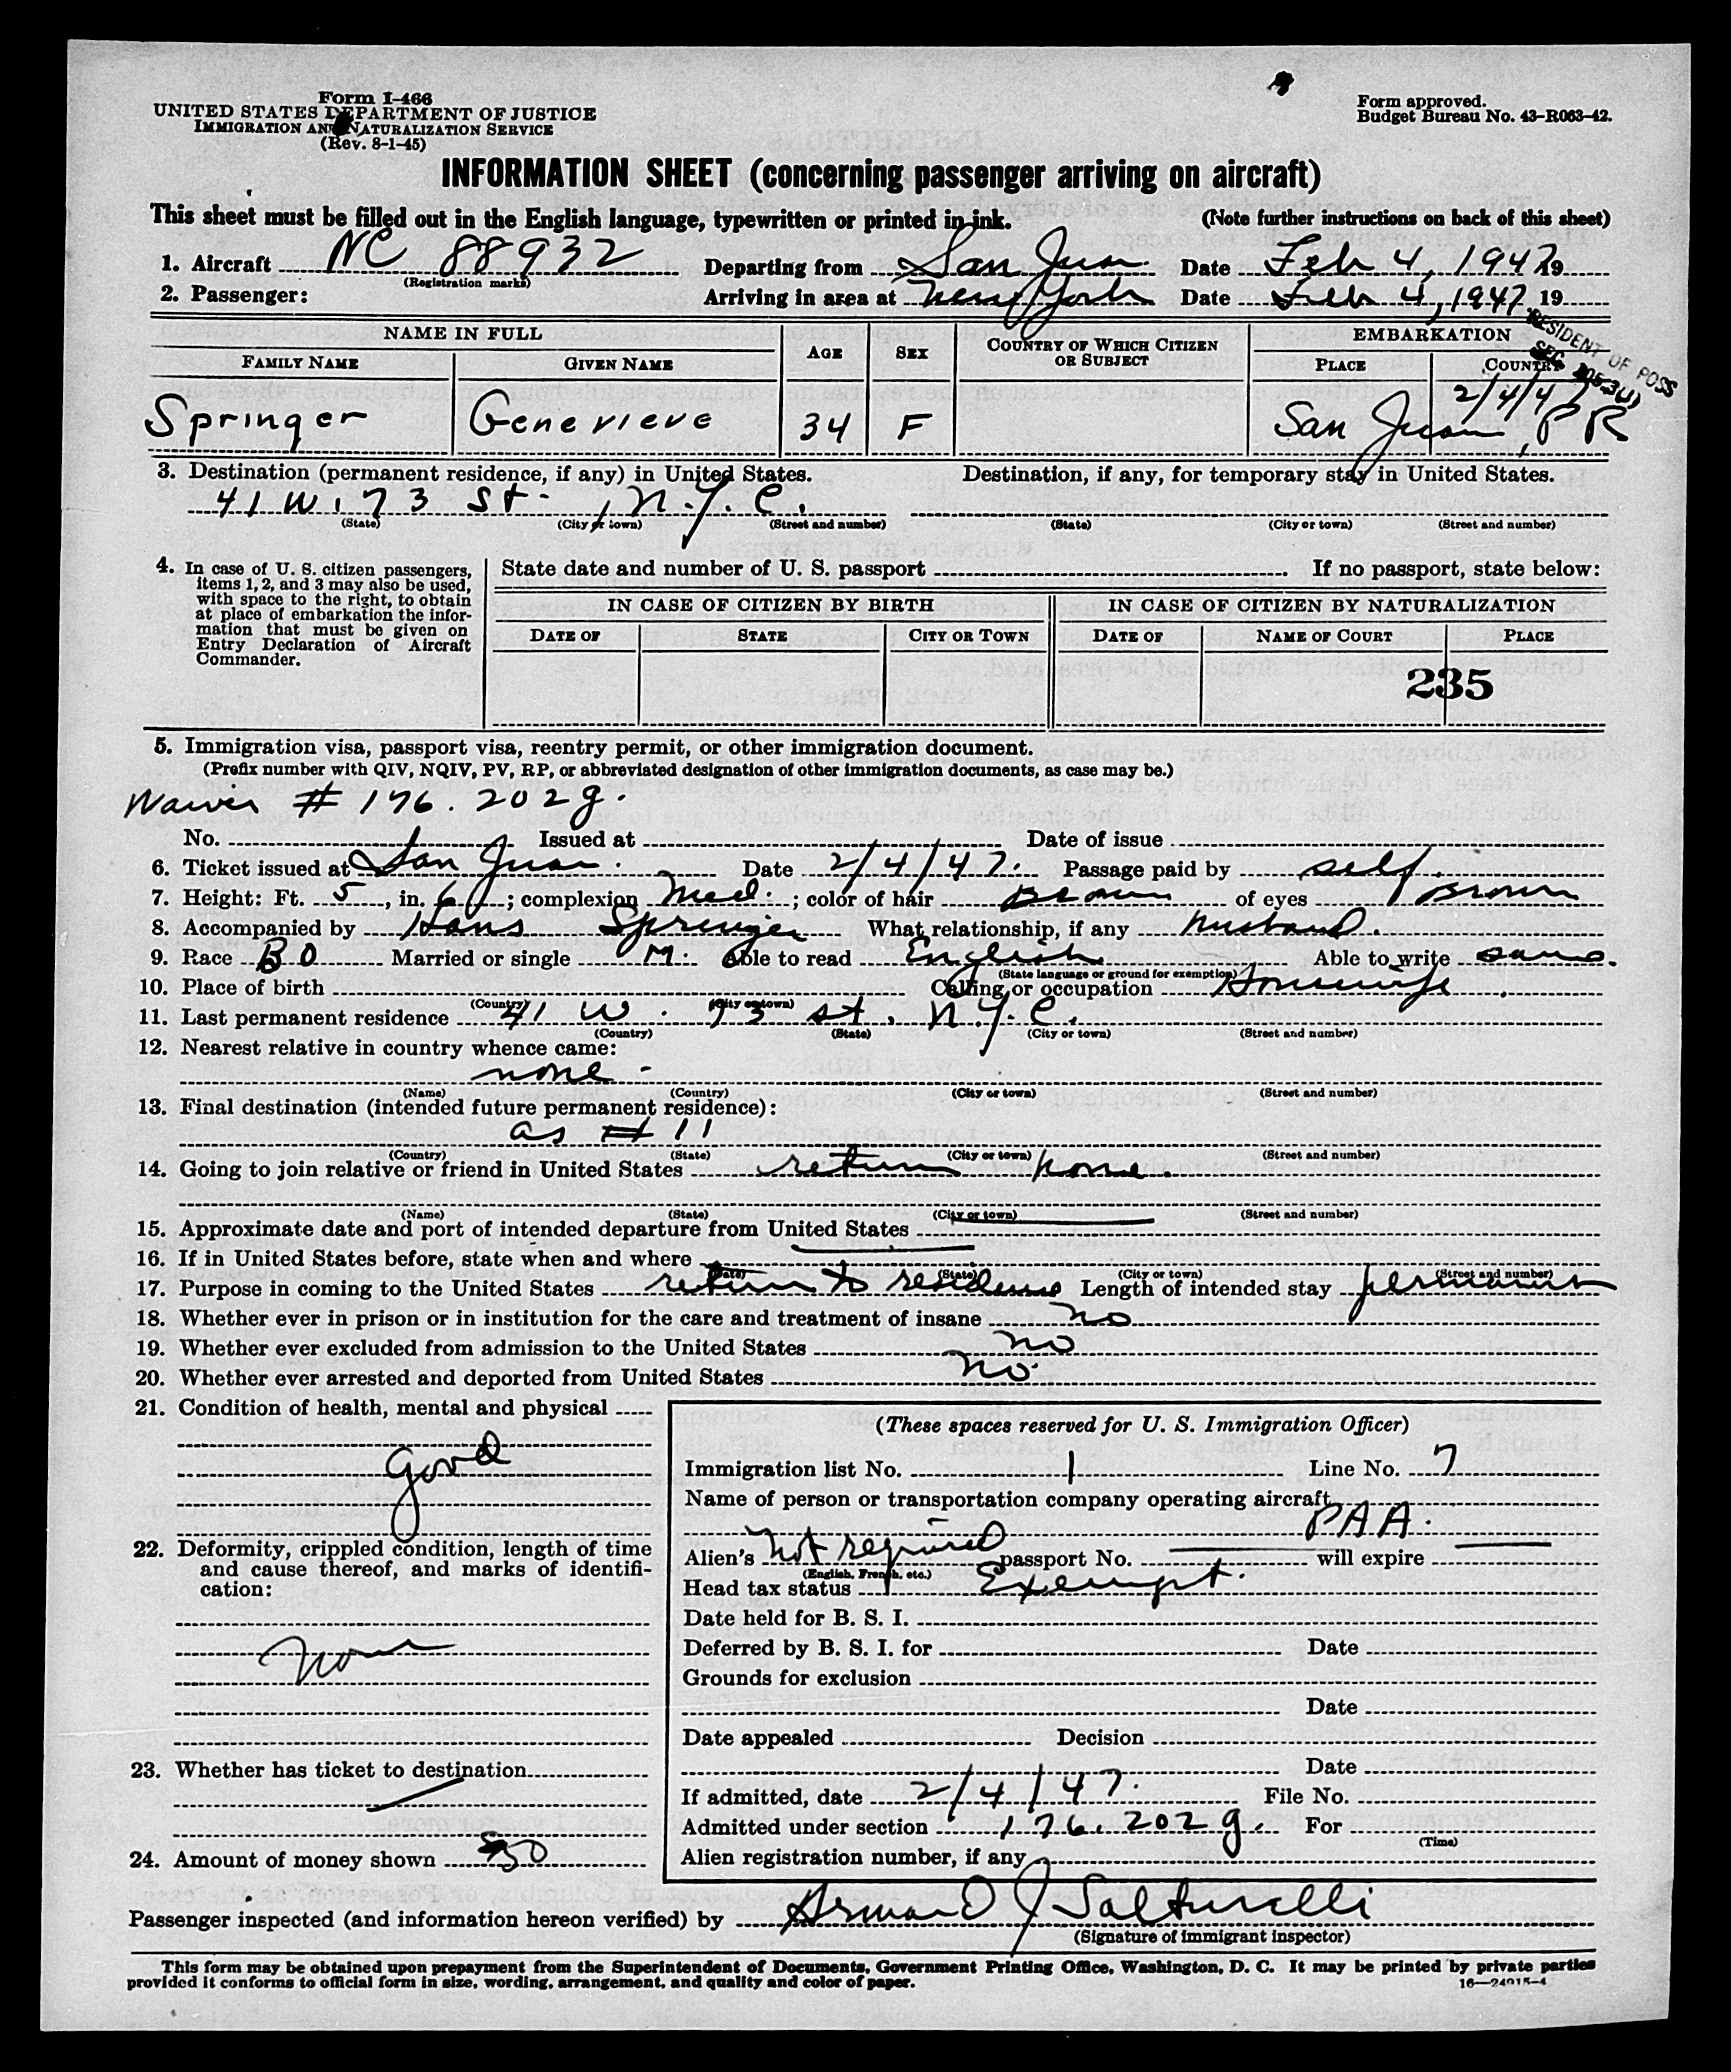 Form I-466
UNITED STATES DEPARTMENT OF JUSTICE
IMMIGRATION AND NATURALIZATION SERVICE
(Rev. 8-1-45)
Form approved.
Budget Bureau No. 43-R063-42.
INFORMATION SHEET (concerning passenger arriving on aircraft)
This sheet must be filled out in the English language, typewritten or printed in ink. (Note further instructions on back of this sheet)
1. Aircraft NC 88932 Departing from San Juan Date Feb 4, 1947 19
(Registration marks)
2. Passenger: Arriving in area at New York Date Feb 4, 1947 19
RESIDENT OF POSS
SEC
NAME IN FULL AGE SEX COUNTRY OF WHICH CITIZEN OR SUBJECT EMBARKATION
FAMILY NAME GIVEN NAME PLACE COUNTRY
2/4/47
Springer Genevieve 34 F San Juan, PR
3. Destination (permanent residence, if any) in United States. Destination, if any, for temporary stay in United States.
41 W. 73 St. N.Y.C.
(State) (City or town) (Street and number) (State) (City or town) (Street and number)
4. In case of U. S. citizen passengers, items 1, 2, and 3 may also be used, with space to the right, to obtain at place of embarkation the information that must be given on Entry Declaration of Aircraft Commander.
State date and number of U. S. passport . If no passport, state below:
IN CASE OF CITIZEN BY BIRTH IN CASE OF CITIZEN BY NATURALIZATION
DATE OF STATE CITY OR TOWN DATE OF NAME OF COURT PLACE
235
5. Immigration visa, passport visa, reentry permit, or other immigration document.
(Prefix number with QIV, NQIV, PV, RP, or abbreviated designation of other immigration documents, as case may be.)
Waiver # 176.202g.
No. Issued at Date of issue
6. Ticket issued at San Juan. Date 2/4/47. Passage paid by self.
7. Height: Ft. 5, in. 6; complexion Med.; color of hair Brown of eyes Brown
8. Accompanied by Hans Springer What relationship, if any husband.
9. Race BO Married or single M. Able to read English Able to write same.
(State language or ground for exemption)
10. Place of birth Calling or occupation Housewife
(Country) (City or town)
11. Last permanent residence 41 W. 73 St. N.Y.C.
(Country) (State) (City or town) (Street and number)
12. Nearest relative in country whence came:
none -
(Name) (Country) (City or town) (Street and number)
13. Final destination (intended future permanent residence):
as # 11
(Country) (State) (City or town) (Street and number)
14. Going to join relative or friend in United States return home.
(Name) (State) (City or town) (Street and number)
15. Approximate date and port of intended departure from United States
16. If in United States before, state when and where
(Date) (State) (City or town) (Street and number)
17. Purpose in coming to the United States return to residence Length of intended stay permanent
18. Whether ever in prison or in institution for the care and treatment of insane no
19. Whether ever excluded from admission to the United States no
20. Whether ever arrested and deported from United States no.
21. Condition of health, mental and physical
good
22. Deformity, crippled condition, length of time and cause thereof, and marks of identification:
None
23. Whether has ticket to destination
24. Amount of money shown 50
(These spaces reserved for U. S. Immigration Officer)
Immigration list No. 1 Line No. 7
Name of person or transportation company operating aircraft
PAA.
Alien's Not required passport No. will expire
(English, French, etc.)
Head tax status Exempt.
Date held for B. S. I.
Deferred by B. S. I. for Date
Grounds for exclusion
Date
Date appealed Decision
Date
If admitted, date 2/4/47. File No.
Admitted under section 176.202g. For
(Time)
Alien registration number, if any
Passenger inspected (and information hereon verified) by Armand J Salturelli
(Signature of immigrant inspector)
This form may be obtained upon prepayment from the Superintendent of Documents, Government Printing Office, Washington, D. C. It may be printed by private parties
provided it conforms to official form in size, wording, arrangement, and quality and color of paper. 16—24915-4